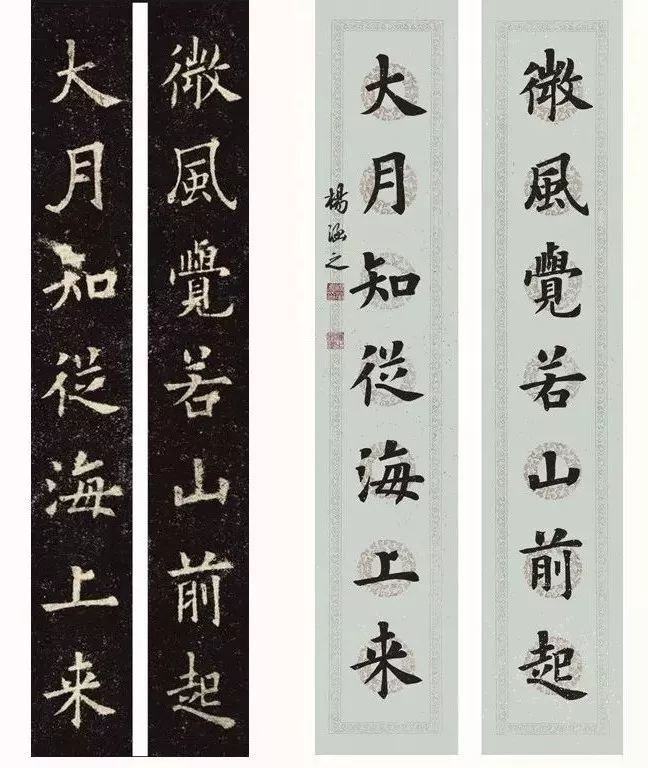 微風覺若山前起
大月知從海上来
微風覺若山前起
大月知從海上来
楊涵之